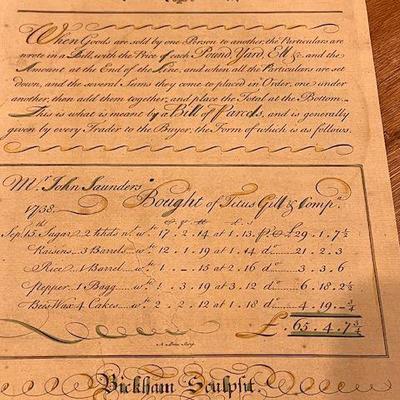 When Goods are sold by one Person to another, the Particulars are
wrote in a Bill, with the Price of each Pound, Yard, Ell &c. and the
Amount at the End of the Line, and when all the Particulars are set
down, and the several Sums they come to placed in Order, one under
another, then add them together, and place the Total at the Bottom.
This is what is meant by a Bill of Parcels, and is generally
given by every Trader to the Buyer, the Form of which is as follows.
Mr. John Saunders
Bought of Titus Gill & Compa.
1738.
Sep. 15th Sugar 2 wt. 17 . 2 . 14 at 1 . 13 29 . 1 . 7½
Raisens 3 Barrels wt. 12 . 1 . 19 at 1 . 14 do. 21 . 2 . 3
Rice 1 Barrel wt. 1 . — . 15 at 2 . 16 do. 3 . 3 . 6
Pepper 1 Bagg wt. 1 . 3 . 19 at 3 . 12 do. 6 . 18 . 2½
Bees Wax 4 Cakes wt. 2 . 2 . 12 at 1 . 18 do. 4 . 19 . —¾
£ 65 . 4 . 7¾
Bickham Sculpsit.